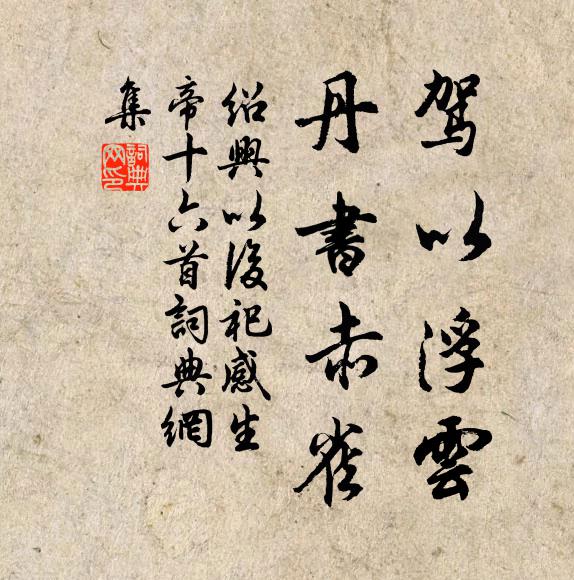 駕以浮雲
丹書赤雀
紹興以後祀感生
帝十六首詞典網
集
詞典
网印